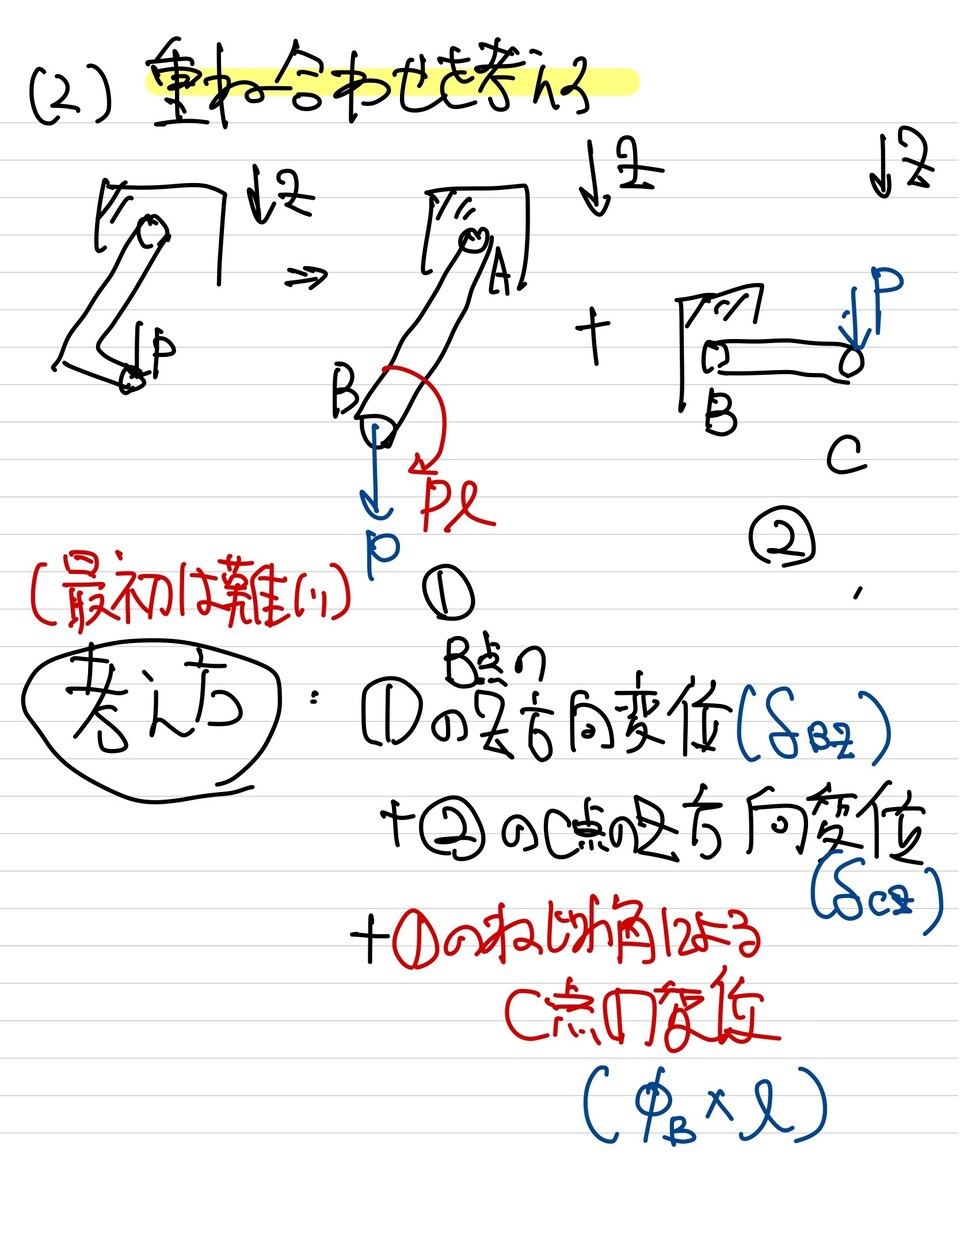 (2) 重ね合わせを考える
↓z
↓z
↓z
P
⇒
A
B
Pl
P
+
P
B
C
①
②
(最初は難しい)
考え方 : ①のB点のz方向変位(δBz)
+②のC点のz方向変位
(δCz)
+①のねじれ角による
C点の変位
(φB×l)